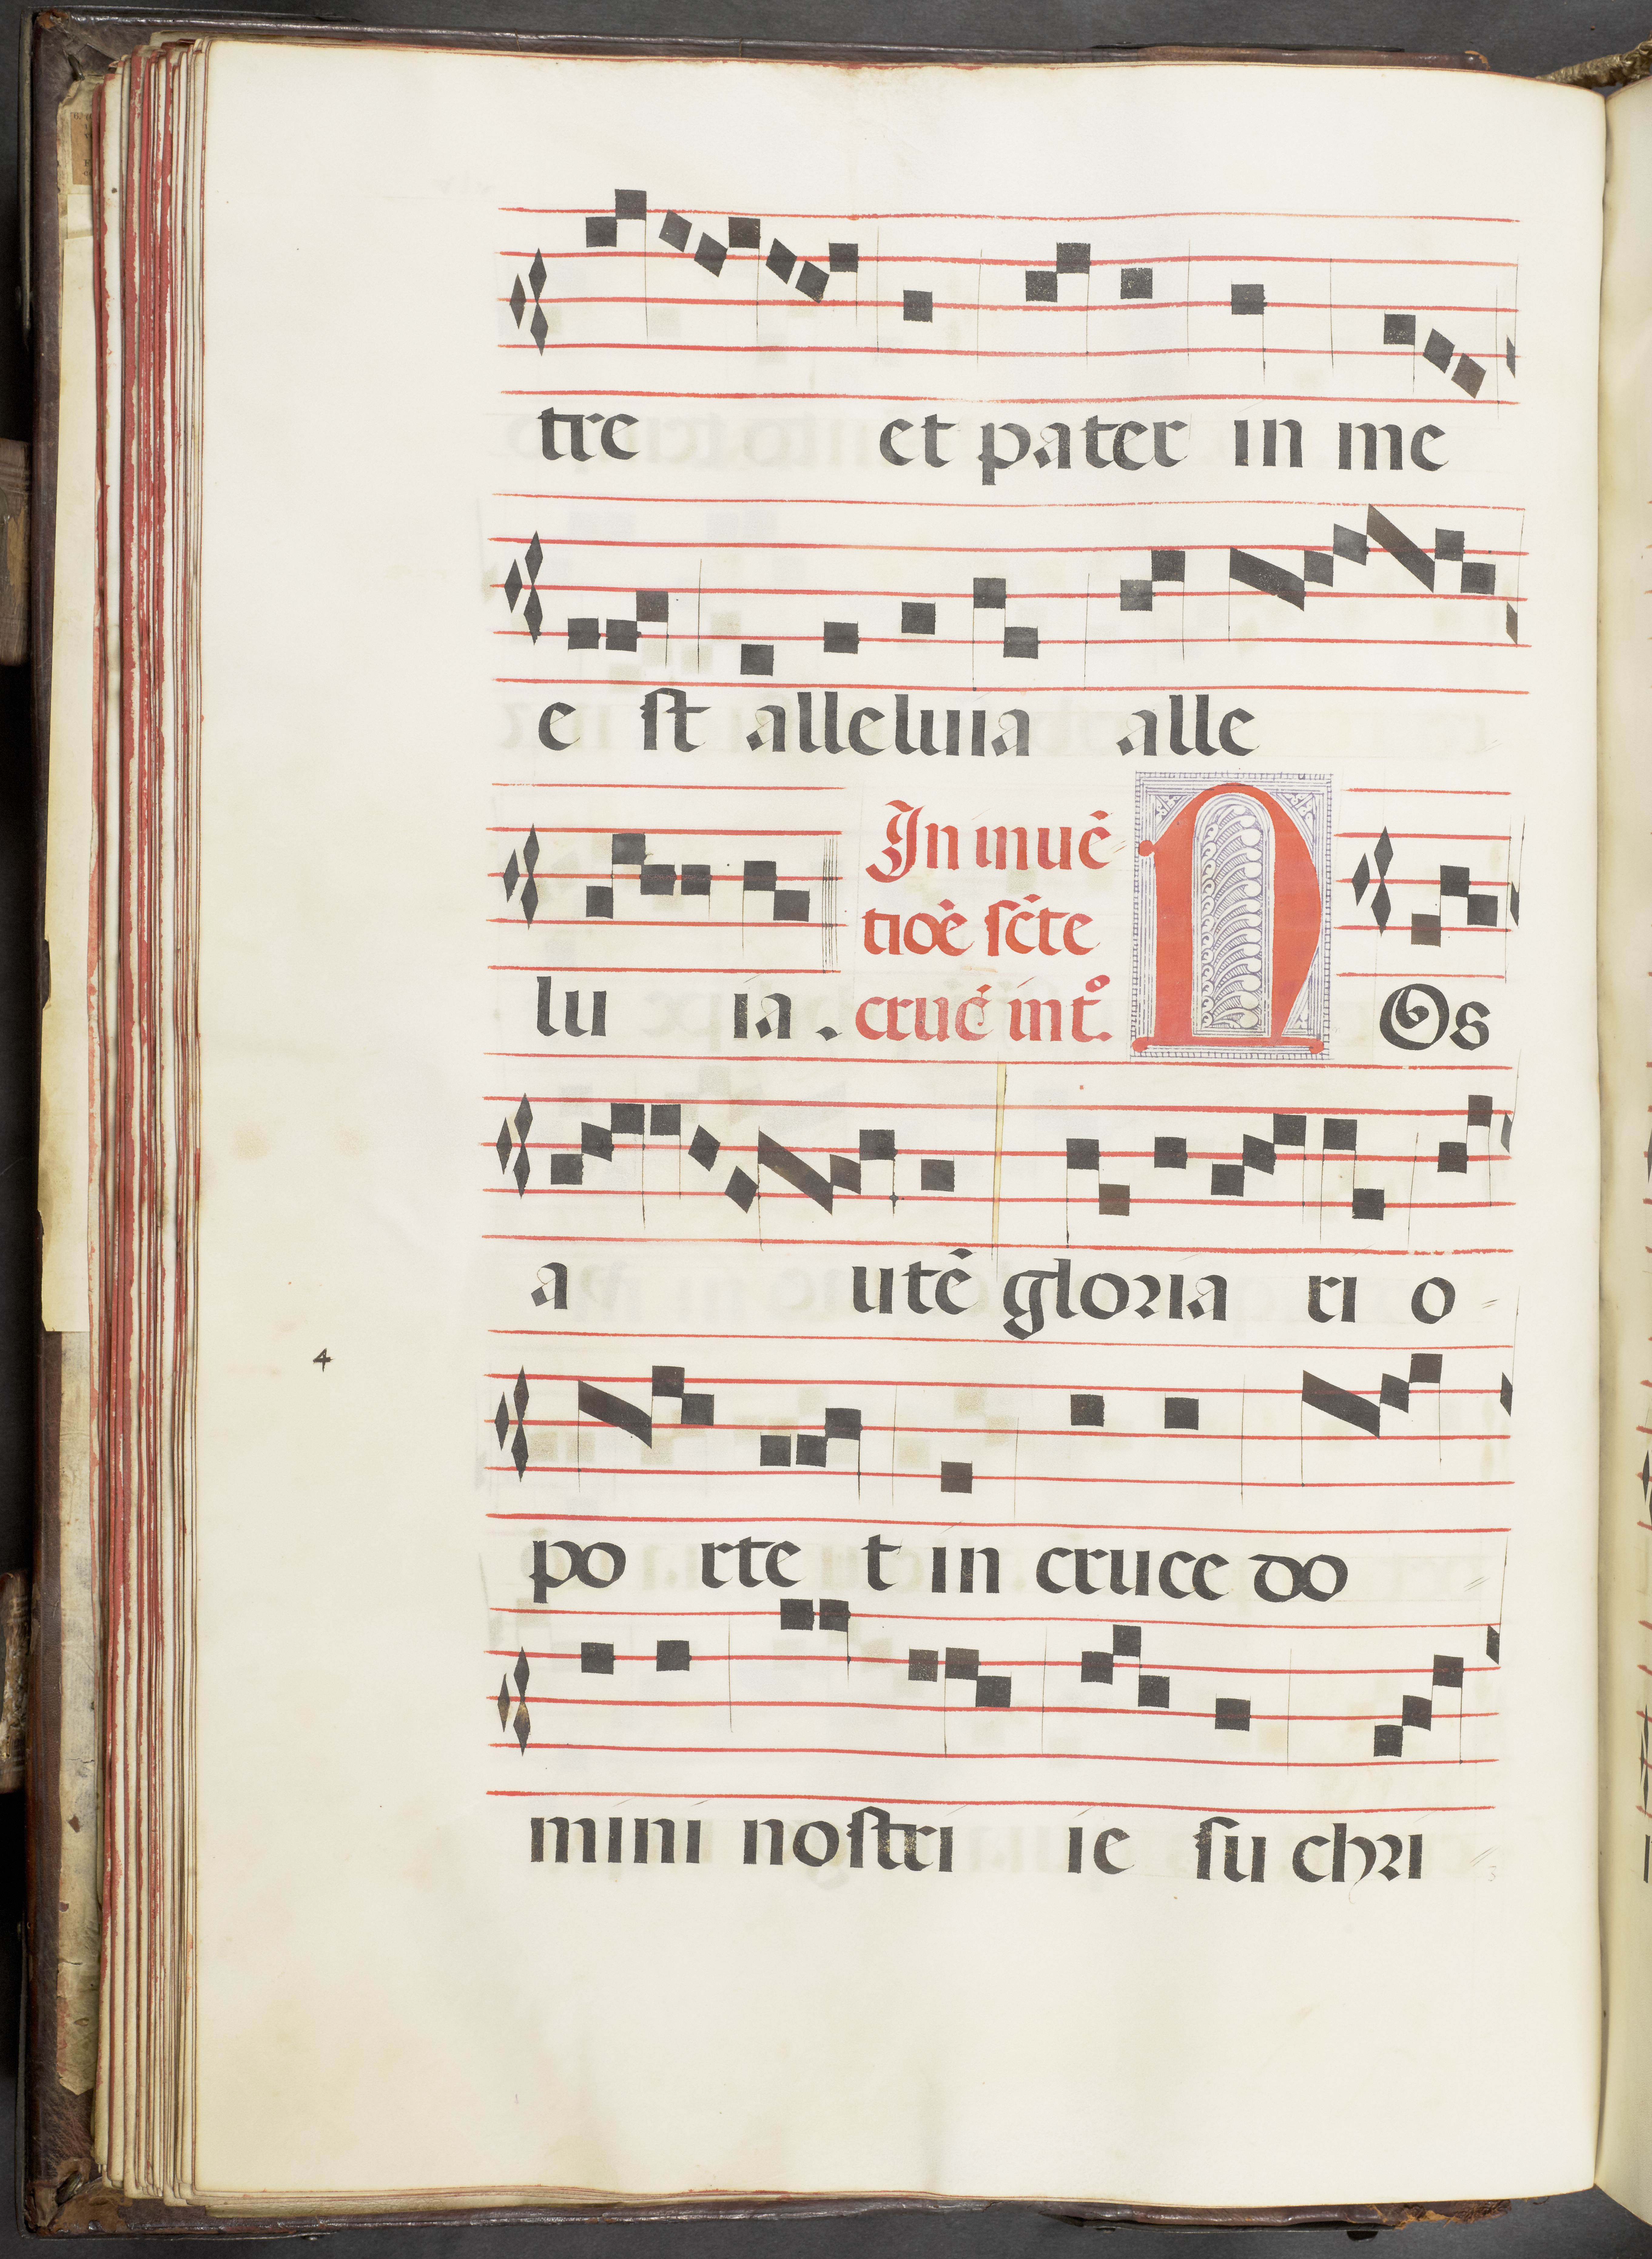 tre et pater in me
e st alleluia alle
In inuē
tioē scte
crucē int°.
lu ia . N Os
a utē gloria ri o
4
po rte t in cruce do
mini nostri ie su chri